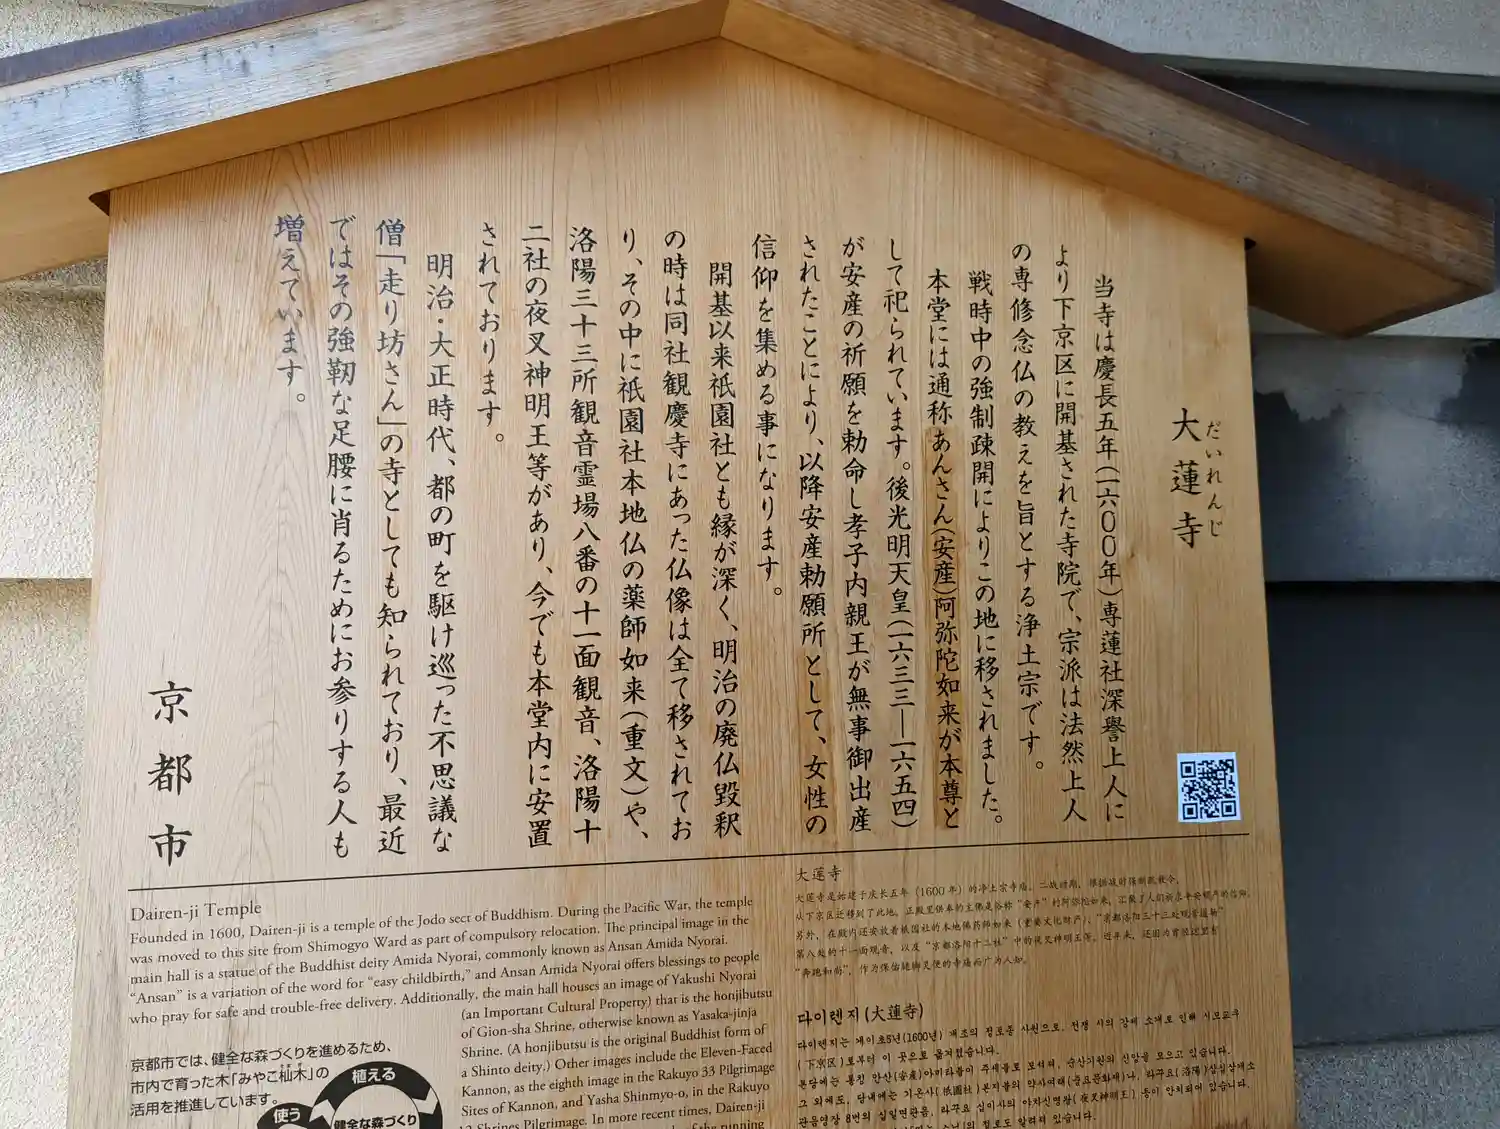 大蓮寺
だいれんじ
当寺は慶長五年(一六〇〇年)専蓮社深誉上人に
より下京区に開基された寺院で、宗派は法然上人
の専修念仏の教えを旨とする浄土宗です。
戦時中の強制疎開によりこの地に移されました。
本堂には通称あんさん(安産)阿弥陀如来が本尊と
して祀られています。後光明天皇(一六三三―一六五四)
が安産の祈願を勅命し孝子内親王が無事御出産
されたことにより、以降安産勅願所として、女性の
信仰を集める事になります。
開基以来祇園社とも縁が深く、明治の廃仏毀釈
の時は同社観慶寺にあった仏像は全て移されてお
り、その中に祇園社本地仏の薬師如来(重文)や、
洛陽三十三所観音霊場八番の十一面観音、洛陽十
二社の夜叉神明王等があり、今でも本堂内に安置
されております。
明治・大正時代、都の町を駆け巡った不思議な
僧「走り坊さん」の寺としても知られており、最近
ではその強靭な足腰に肖るためにお参りする人も
増えています。
京都市
Dairen-ji Temple
Founded in 1600, Dairen-ji is a temple of the Jodo sect of Buddhism. During the Pacific War, the temple
was moved to this site from Shimogyo Ward as part of compulsory relocation. The principal image in the
main hall is a statue of the Buddhist deity Amida Nyorai, commonly known as Ansan Amida Nyorai.
“Ansan” is a variation of the word for “easy childbirth,” and Ansan Amida Nyorai offers blessings to people
who pray for safe and trouble-free delivery. Additionally, the main hall houses an image of Yakushi Nyorai
(an Important Cultural Property) that is the honjibutsu
of Gion-sha Shrine, otherwise known as Yasaka-jinja
Shrine. (A honjibutsu is the original Buddhist form of
a Shinto deity.) Other images include the Eleven-Faced
Kannon, as the eighth image in the Rakuyo 33 Pilgrimage
Sites of Kannon, and Yasha Shinmyo-o, in the Rakuyo
12 Shrines Pilgrimage. In more recent times, Dairen-ji
of the running
京都市では、健全な森づくりを進めるため、
市内で育った木「みやこ杣木」の
活用を推進しています。
植える
使う
健全な森づくり
大莲寺
大莲寺是始建于庆长五年（1600年）的净土宗寺庙。二战时期，根据战时强制疏散令，
从下京区迁移到了此地。正殿里供奉的主佛是俗称“安产”的阿弥陀如来，汇聚了人们祈求平安顺产的信仰。
另外，在殿内还安放着祇园社的本地佛药师如来（重要文化财产）、“京都洛阳三十三处观音道场”
第八处的十一面观音，以及“京都洛阳十二社”中的夜叉神明王等。近年来，还因为曾经这里有
“奔跑和尚”，作为保佑腿脚灵便的寺庙而广为人知。
다이렌지(大蓮寺)
다이렌지는 게이초5년(1600년) 개조의 정토종 사원으로, 전쟁 시의 강제 소개로 인해 시모교구
(下京区)로부터 이 곳으로 옮겨졌습니다.
본당에는 통칭 안산(安産)아미타불이 주세불로 모셔져, 순산기원의 신앙을 모으고 있습니다.
그 외에도, 당내에는 기온사(祇園社)본지불의 약사여래(중요문화재)나, 라쿠요(洛陽)삼십삼개소
관음영장 8번의 십일면관음, 라쿠요 십이사의 야차신명왕(夜叉神明王) 등이 안치되어 있습니다.